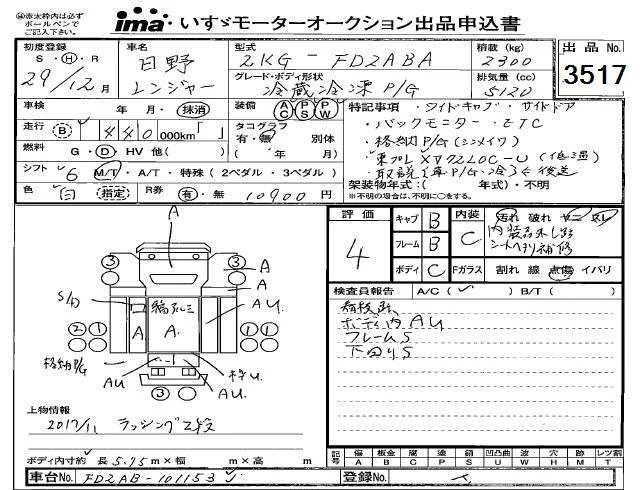 ㊟赤太枠内は必ず
ボールペンで
ご記入下さい。
ima いすゞモーターオークション出品申込書
初度登録 S・H・R 29/12月
車名 日野 レンジャー
型式 2KG-FD2ABA
グレード・ボディ形状 冷蔵冷凍P/G
積載(kg) 2300
排気量(cc) 5120
出品No. 3517
車検 年・月・抹消
装備 AC PS PW
走行 B 440 000km「 」
タコグラフ 有・無 別体
( 年 月)
燃料 G・D・HV 他( )
シフト 6 M/T・A/T・特殊(2ペダル・3ペダル)
色 白 指定 R券 有・無 10900円
特記事項 ・ワイドキャブ・サイドドア
・バックモニター・ETC
・格納P/G(シンメイワ)
・東プレ XV72LDC-U(低温)
・取説 P/G・冷 後送
架装物年式:( 年式)・不明
※不明の場合は、不明に○をする。
評価 4
キャブ B
フレーム B
ボディ C
内装 C
汚れ 破れ ヤニ
内装品外し跡
シートヘタリ補修
Fガラス 割れ 線 点傷 イバリ
検査員報告 A/C( ✓ ) B/T( )
看板跡
ボディ内AU
フレームS
下回りS
A
3 3
A
A
S/D
縞アルミ
A
A
AU
2 1 1 1
格納P/G
AU
3
A
上物情報
2017/11 ラッシング2段
ボディ内寸約 長 5.75m×幅 m×高 m
記号 傷 A 板金 B 腐 C 塗 P 錆 S 凹凸曲 U 波 W 穴 H 跡 M 石 T レンズ割
車台No. FD2AB-101153
登録No.